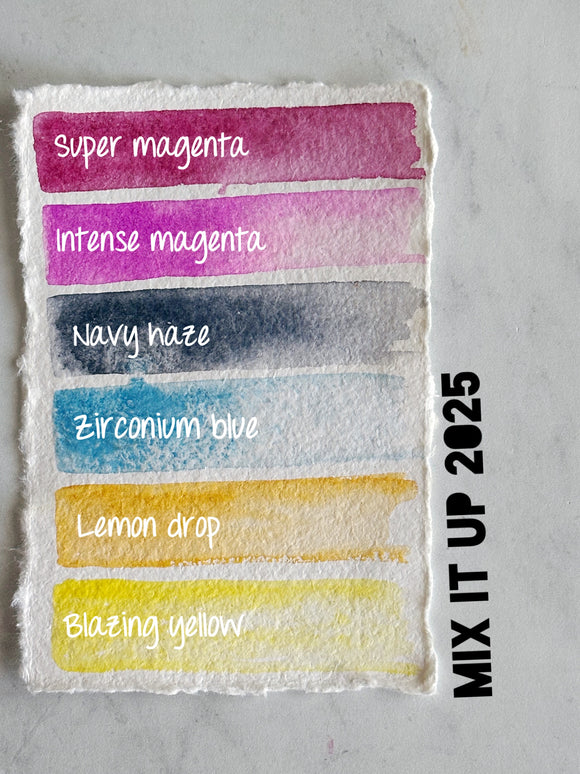 Super magenta
Intense magenta
Navy haze
Zirconium blue
Lemon drop
Blazing yellow
MIX IT UP 2025